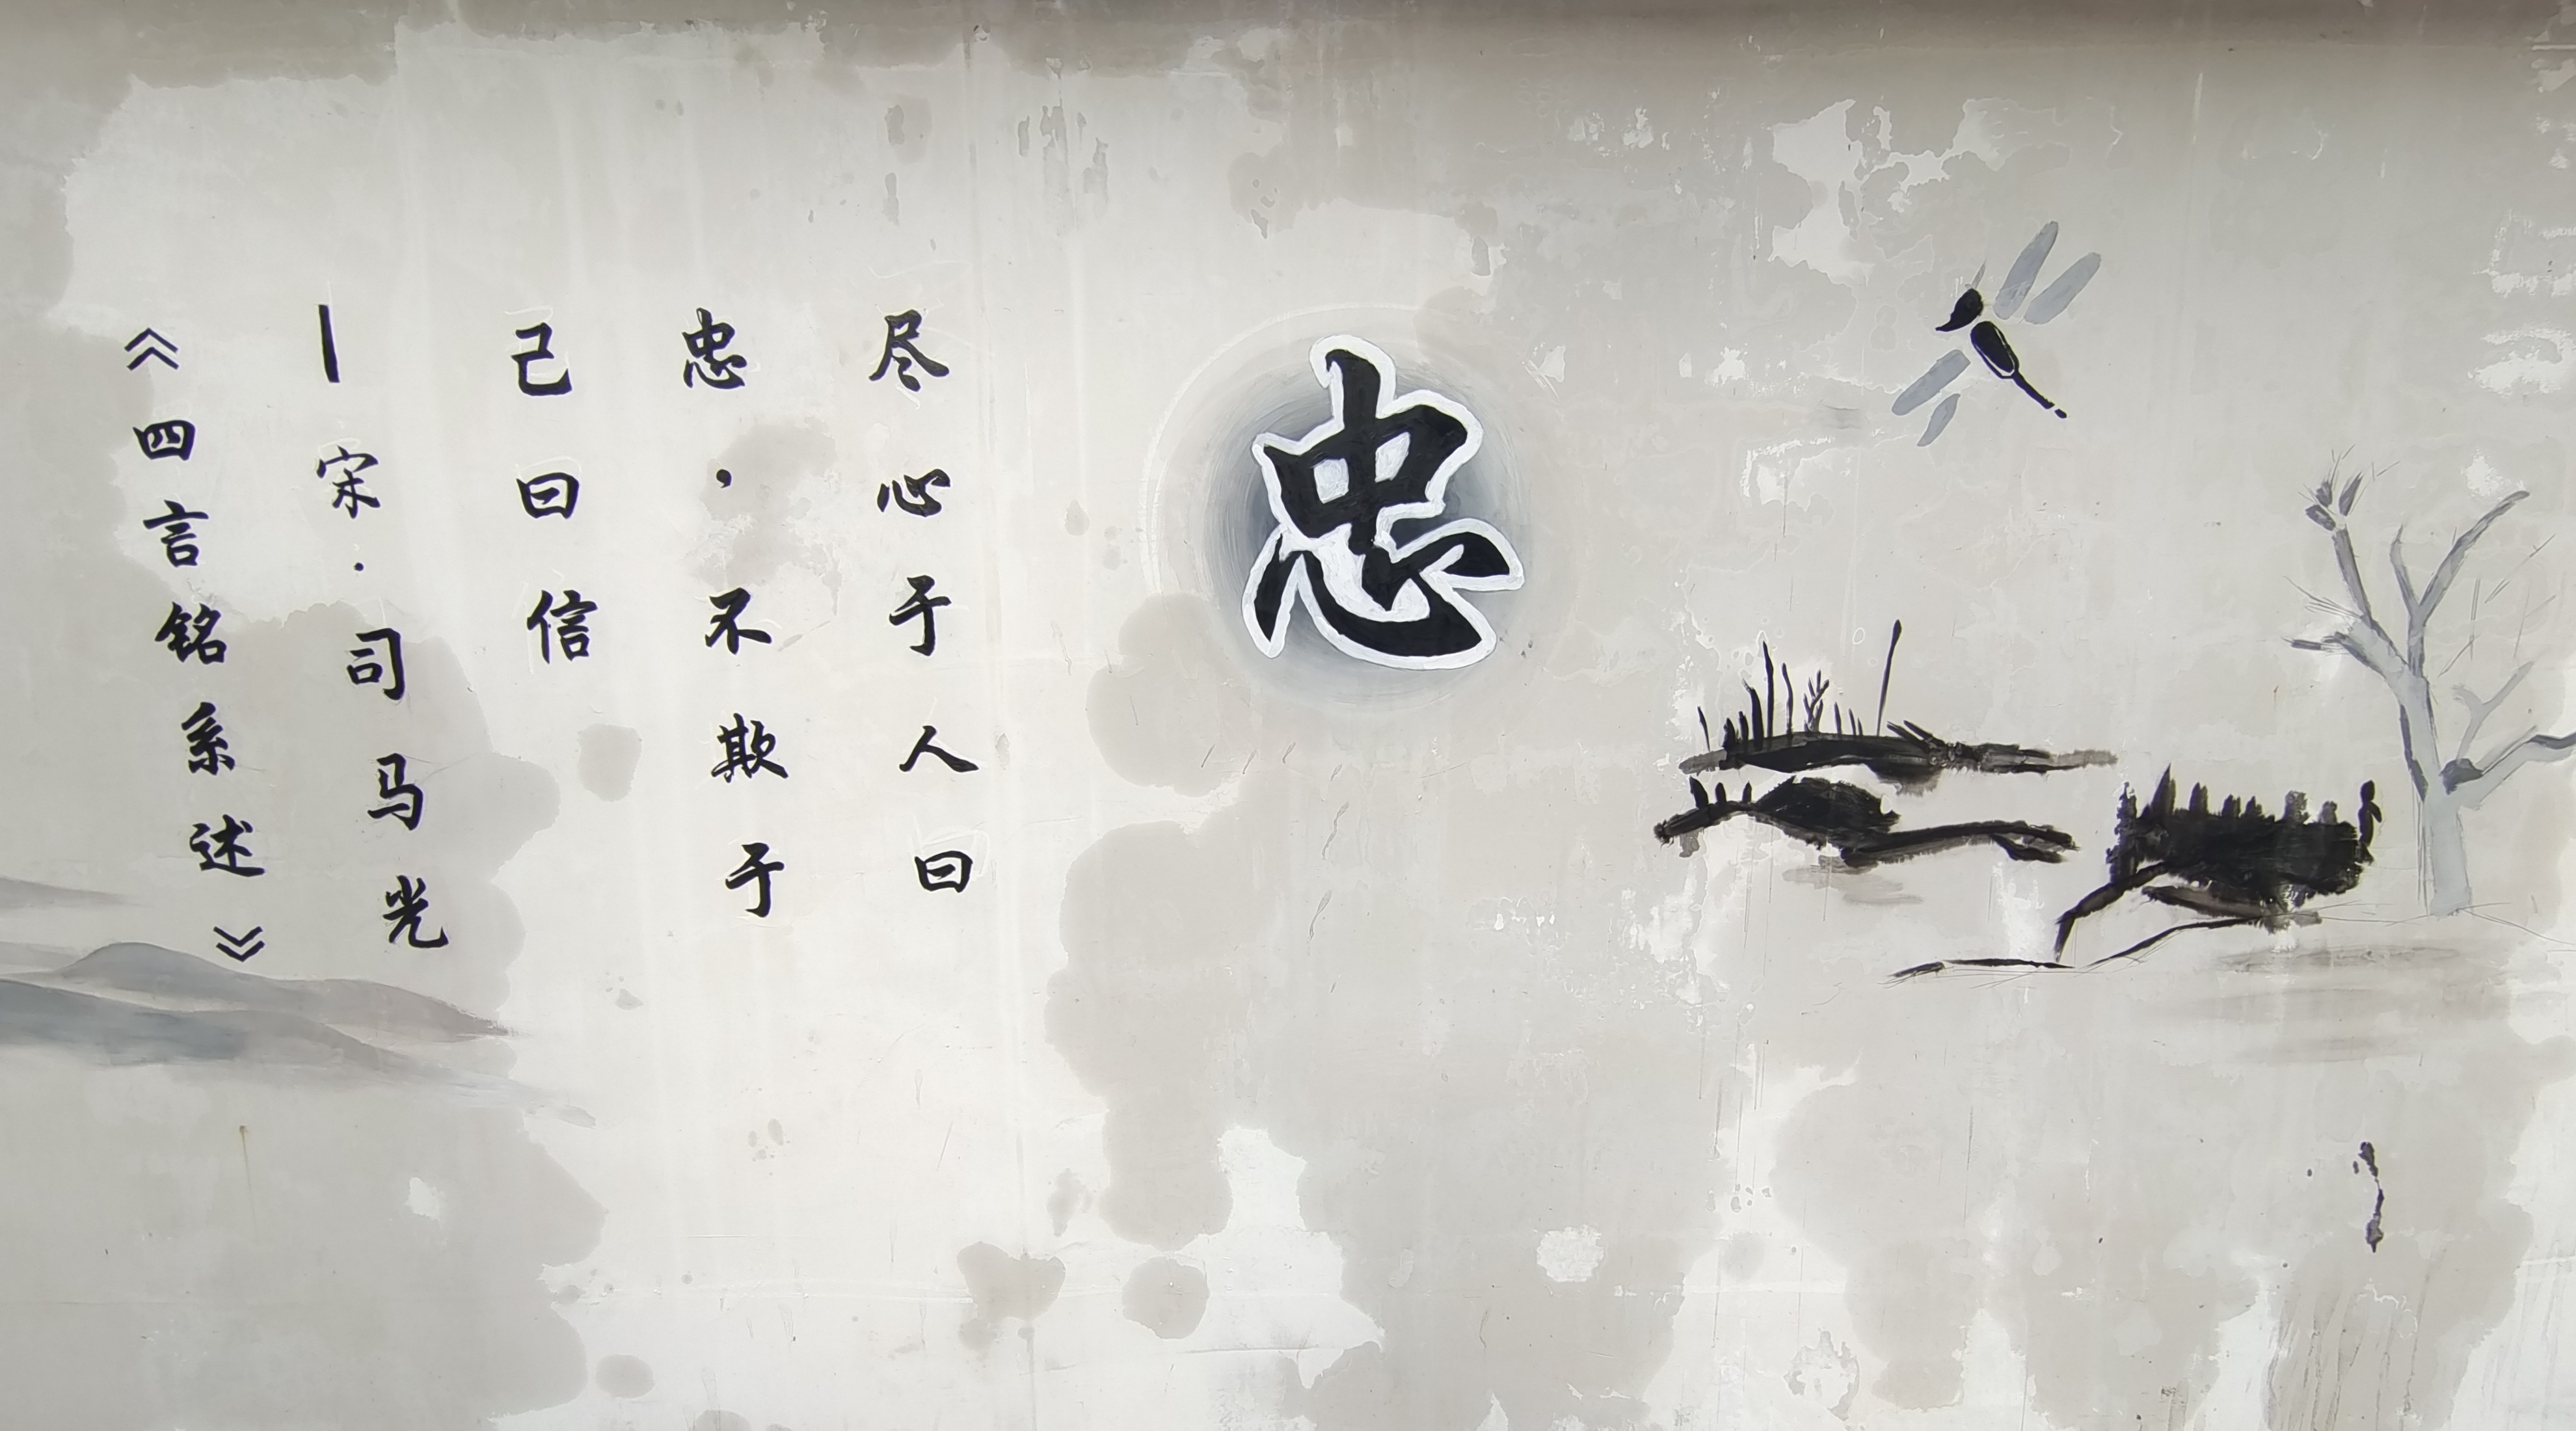 忠
尽心于人曰
忠，不欺于
己曰信
—宋·司马光
《四言铭系述》